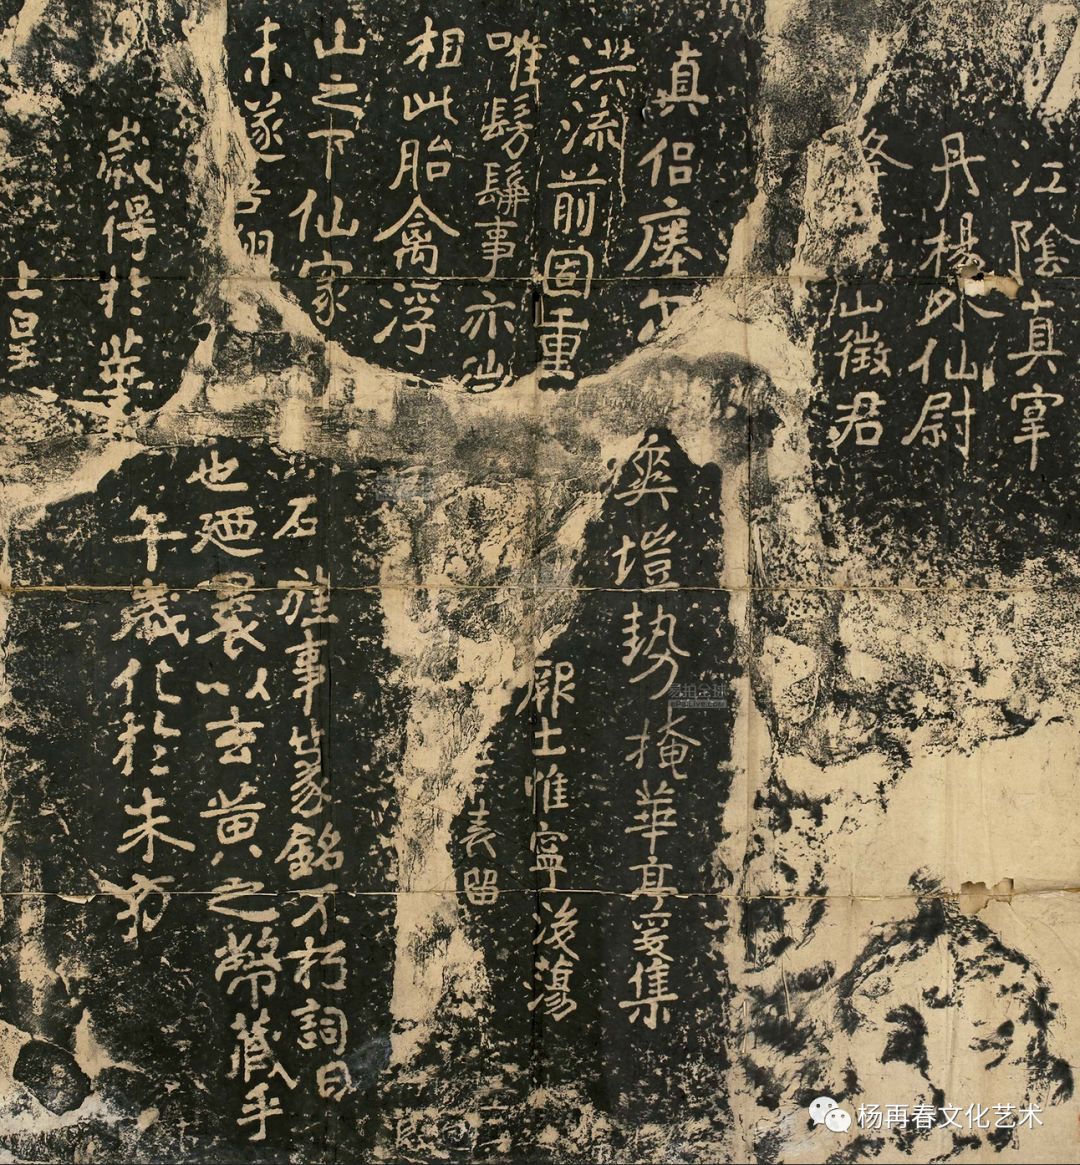 上皇
歲得於華
未遂吾翔
山之下仙家
相此胎禽浮
唯髣髴事亦微
洪流前固重
真侶瘞尔
夅山徵君
丹楊外仙尉
江陰真宰
午歲化於朱方
也迺裹以玄黃之幣藏乎
石旌事篆銘不朽詞曰
表留
厥土惟寧後蕩
爽塏勢掩華亭爰集
易拍全球
epaiLive.com
杨再春文化艺术